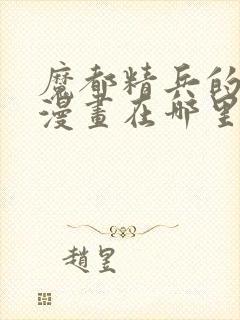 魔都精兵的
漫畫在哪里
趙昱